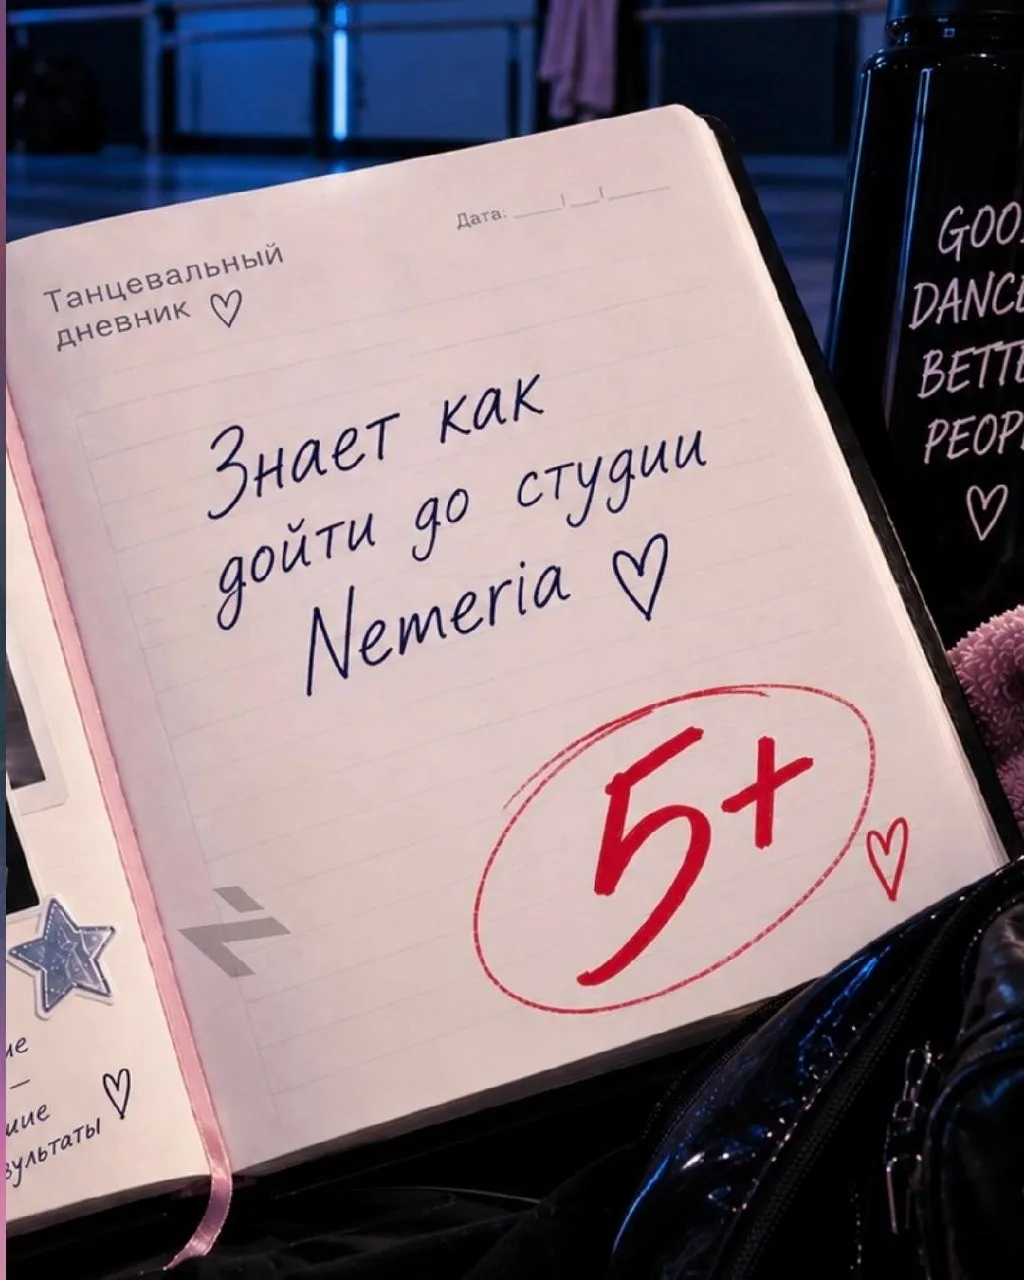 Танцевальный
дневник
Дата:
Знает как
дойти до студии
Nemeria
5+
GOO
DANCE
BETTE
PEOP
ие
—
шие
зультаты